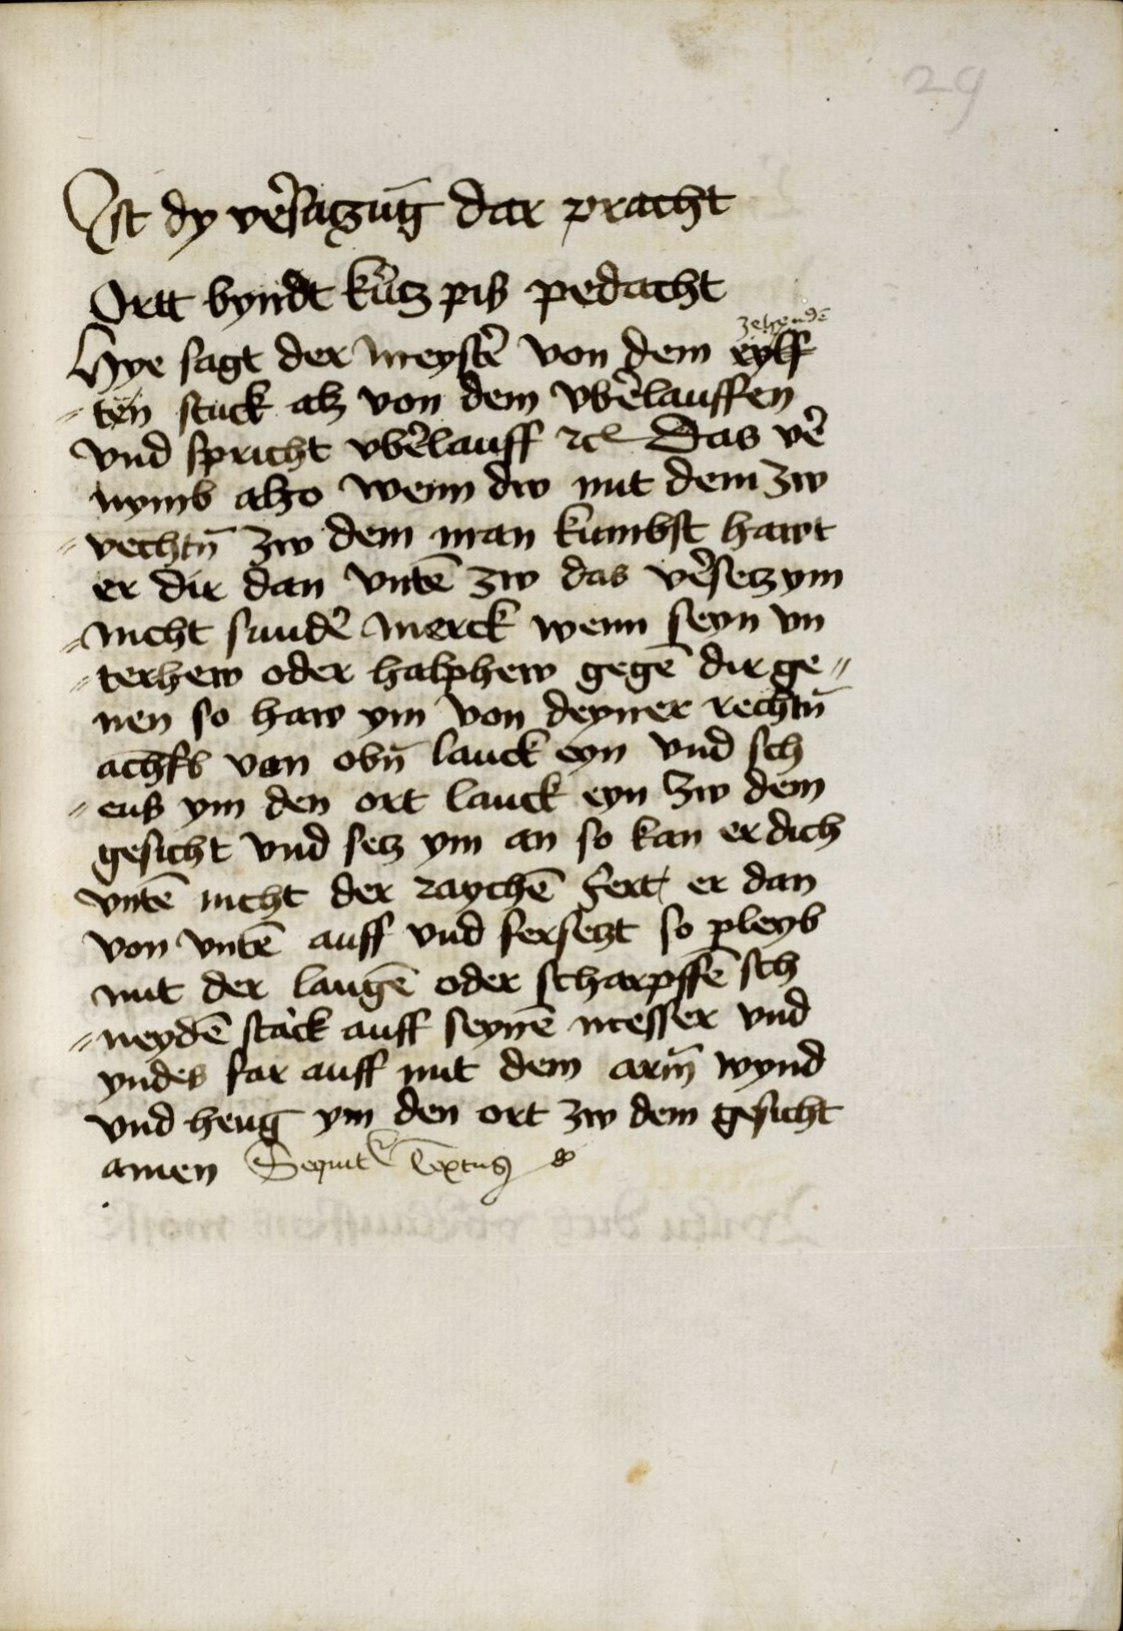 29
Ist dy v̉satzūg dar pracht
Ortt byndt kủtz pis pedacht
zehendē
Hye sagt der meystẻ von dem eylf
⸗ten stuck alz von dem vbẻlauffen
vnd spricht vbẻlauff ⁊cͭ Das vẻ
nymb alzo wenn dw mit dem zw
⸗vechtn̄ zw dem man kumbst hawt
er dir dan vntē zw das vẻsetz ym
⸗nicht sundẻ merck wenn seyn vn
⸗terhew oder halphew gegē dir ge⸗
nen so haw ym von deyner rechtn̄
achsls van obn̄ lanck eyn vnd sch
⸗eus ym den ort lanck eyn zw dem
gesicht vnd setz ym an so kan er dich
vntē nicht der raychē fert er dan
von vntē auff vnd fersetzt so pleyb
mit der langē oder scharpffē sch
⸗neydē stảck auff seynē messer vnd
yndes far auff mit dem arm̄ wynd
vnd heng ym den ort zw dem gesicht
amen Sequit᷑ Textus